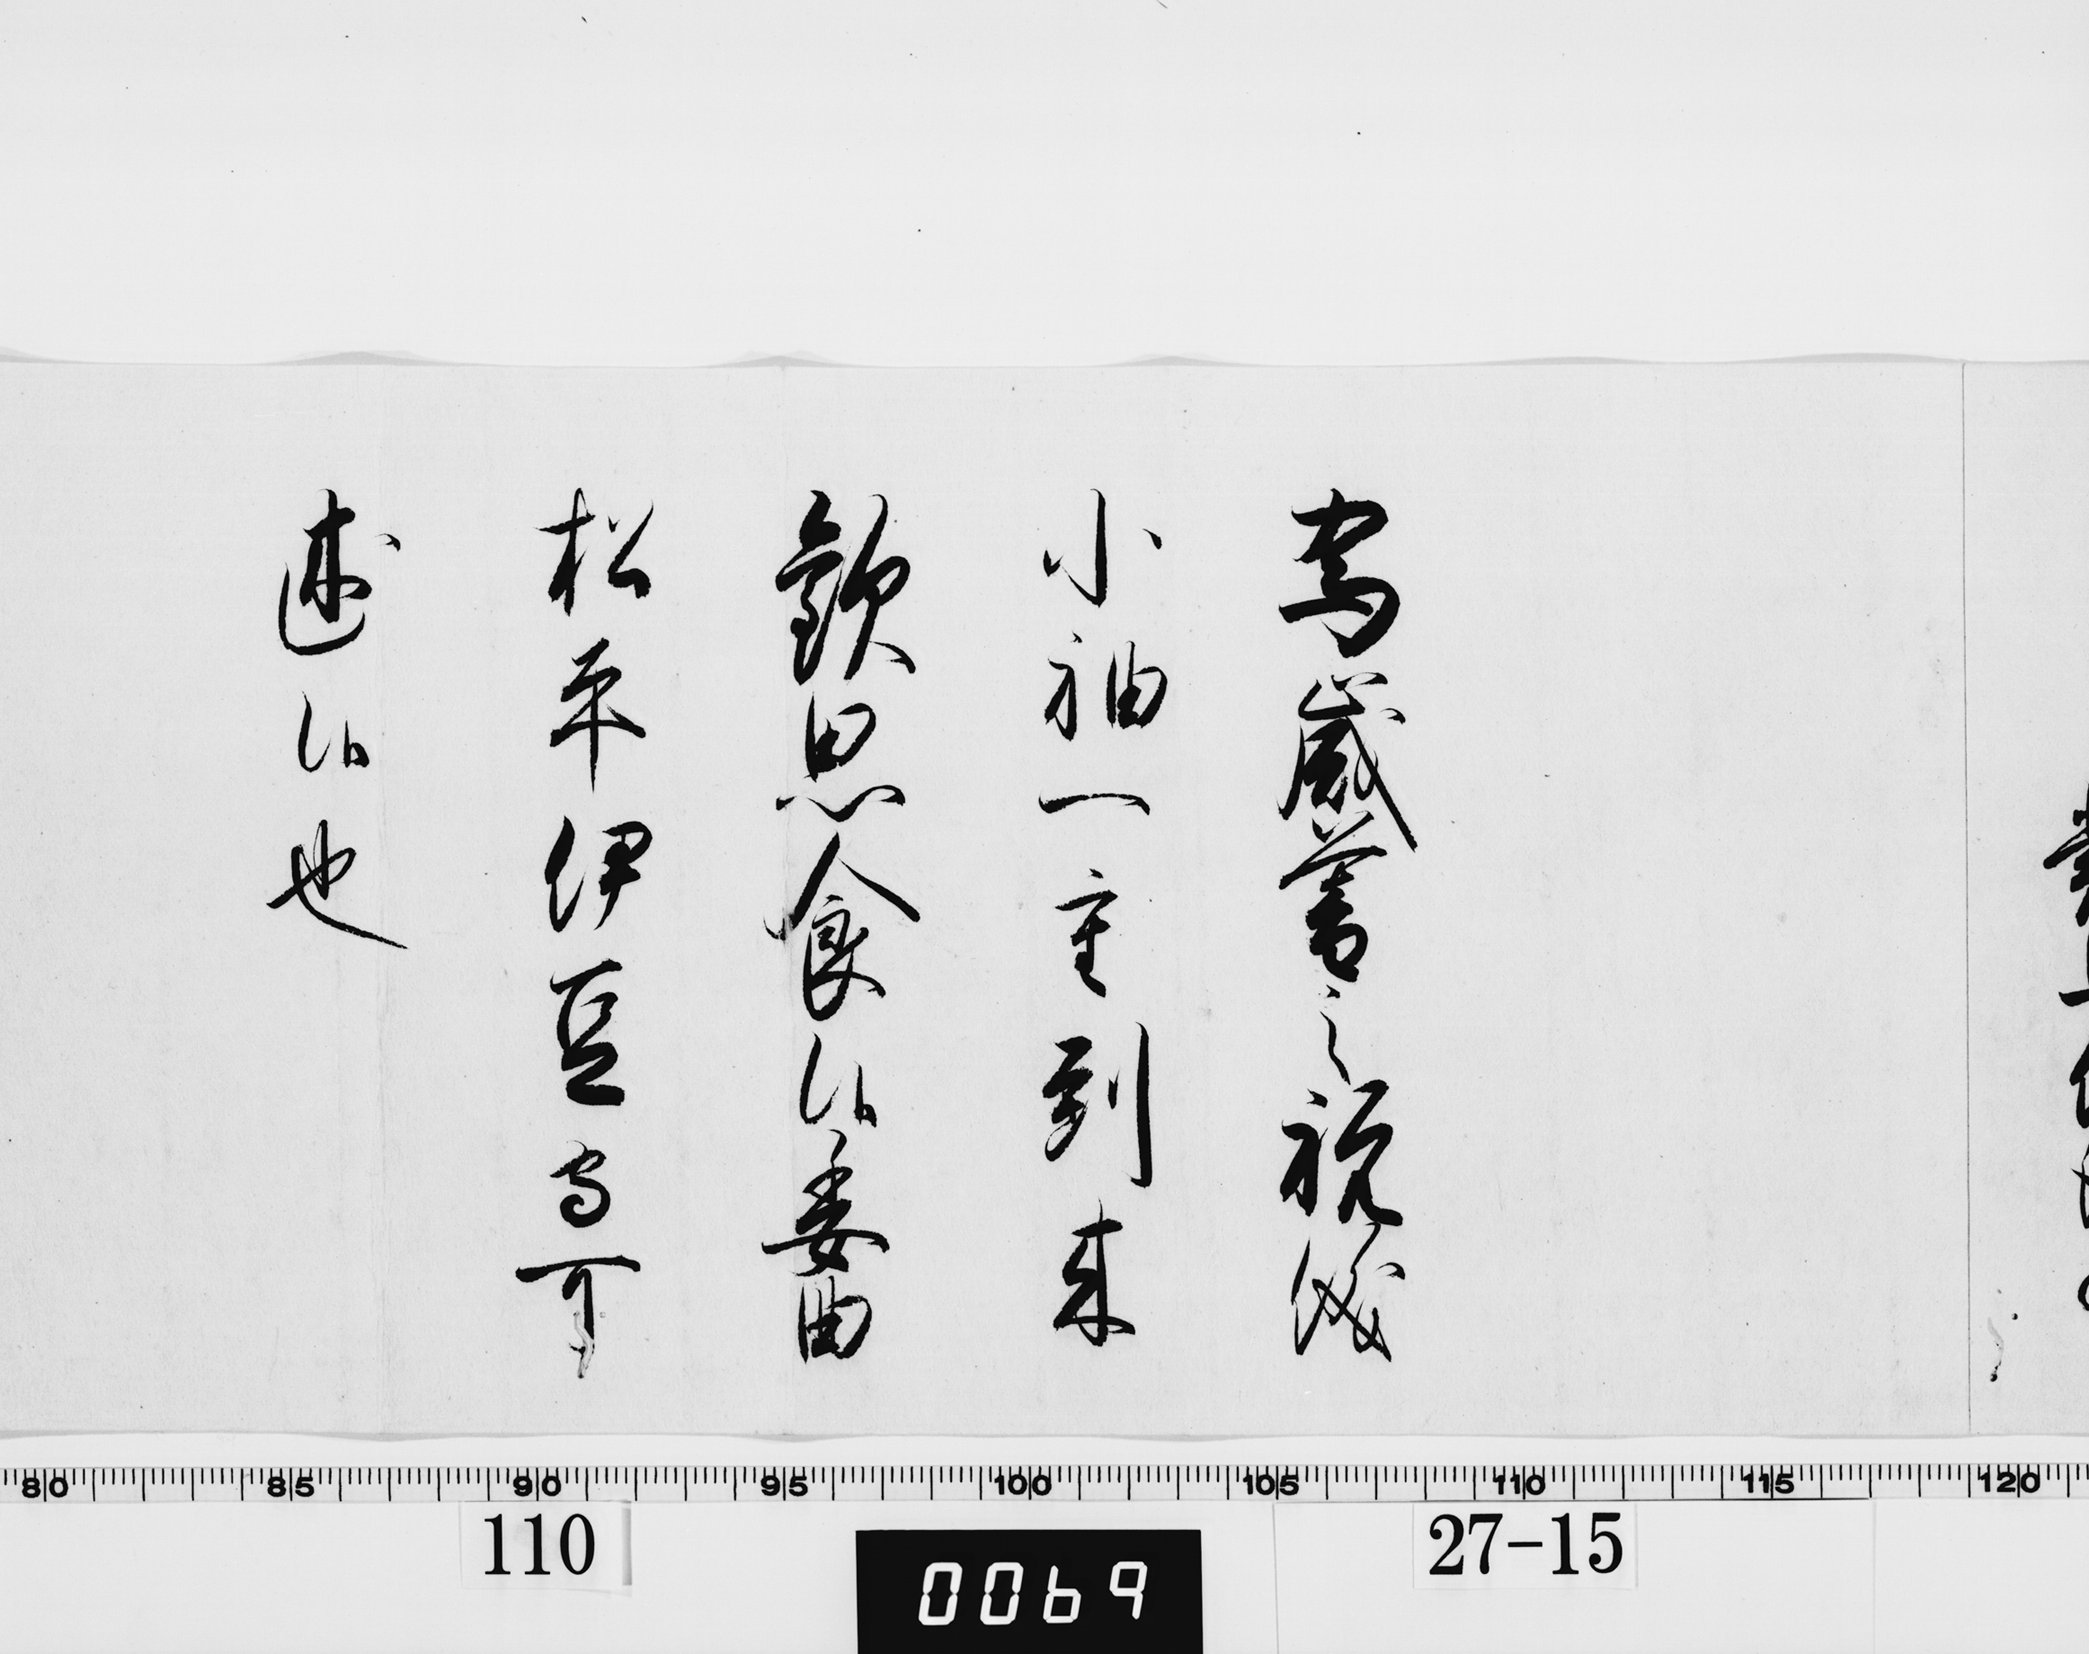 為歳暮之祝儀
小袖一重到来
歓思食候委曲
松平伊豆守可
述候也
80 85 90 95 100 105 110 115 120
110
0069
27-15